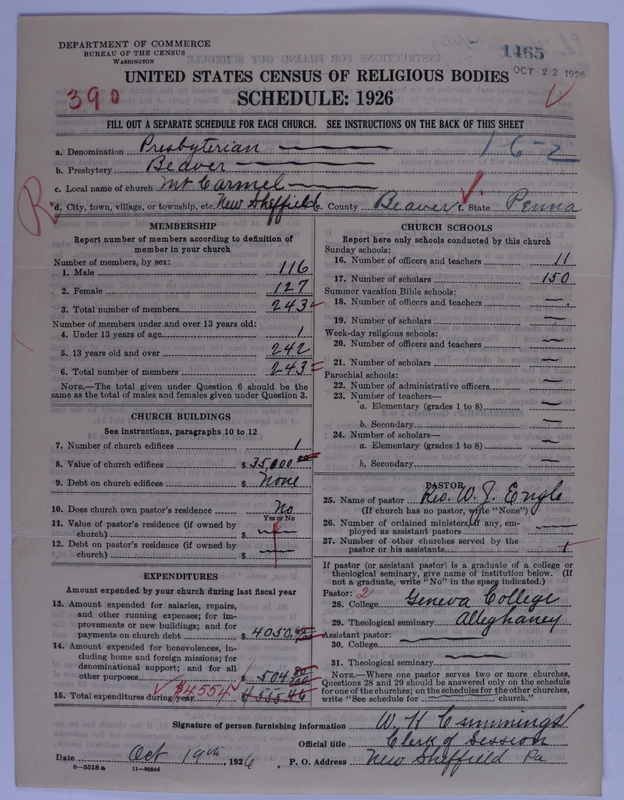 DEPARTMENT OF COMMERCE
BUREAU OF THE CENSUS
WASHINGTON
1465
OCT 22 1926
UNITED STATES CENSUS OF RELIGIOUS BODIES
390
SCHEDULE: 1926
FILL OUT A SEPARATE SCHEDULE FOR EACH CHURCH. SEE INSTRUCTIONS ON THE BACK OF THIS SHEET
a. Denomination Presbyterian
1-6-2
b. Presbytery Beaver
c. Local name of church Mt Carmel
R
d. City, town, village, or township, etc. New Sheffield e. County Beaver f. State Penna
MEMBERSHIP
Report number of members according to definition of
member in your church
Number of members, by sex:
1. Male 116
2. Female 127
3. Total number of members 243
Number of members under and over 13 years old:
4. Under 13 years of age 1
5. 13 years old and over 242
6. Total number of members 243
NOTE.—The total given under Question 6 should be the
same as the total of males and females given under Question 3.
CHURCH BUILDINGS
See instructions, paragraphs 10 to 12
7. Number of church edifices 1
8. Value of church edifices $ 35,000.00
9. Debt on church edifices $ None
10. Does church own pastor's residence No
Yes or No
11. Value of pastor's residence (if owned by
church) $
12. Debt on pastor's residence (if owned by
church) $
EXPENDITURES
Amount expended by your church during last fiscal year
13. Amount expended for salaries, repairs,
and other running expenses; for im-
provements or new buildings; and for
payments on church debt $ 4050.
14. Amount expended for benevolences, in-
cluding home and foreign missions; for
denominational support; and for all
other purposes $ 504.
15. Total expenditures during year $4554 $ 4555.46
CHURCH SCHOOLS
Report here only schools conducted by this church
Sunday schools:
16. Number of officers and teachers 11
17. Number of scholars 150
Summer vacation Bible schools:
18. Number of officers and teachers
19. Number of scholars
Week-day religious schools:
20. Number of officers and teachers
21. Number of scholars
Parochial schools:
22. Number of administrative officers
23. Number of teachers—
a. Elementary (grades 1 to 8)
b. Secondary
24. Number of scholars—
a. Elementary (grades 1 to 8)
b. Secondary
PASTOR
25. Name of pastor Rev. W. J. Engle
(If church has no pastor, write "None")
26. Number of ordained ministers, if any, em-
ployed as assistant pastors
27. Number of other churches served by the
pastor or his assistants 1
If pastor (or assistant pastor) is a graduate of a college or
theological seminary, give name of institution below. (If
not a graduate, write "No" in the space indicated.)
Pastor: 2
28. College Geneva College
29. Theological seminary Alleghaney
Assistant pastor:
30. College
31. Theological seminary
NOTE.—Where one pastor serves two or more churches,
Questions 28 and 29 should be answered only on the schedule
for one of the churches; on the schedules for the other churches,
write "See schedule for church."
Signature of person furnishing information W. H Cummings
Official title Clerk of Session
Date Oct 19th, 1926 P. O. Address New Sheffield Pa
6—5518 a